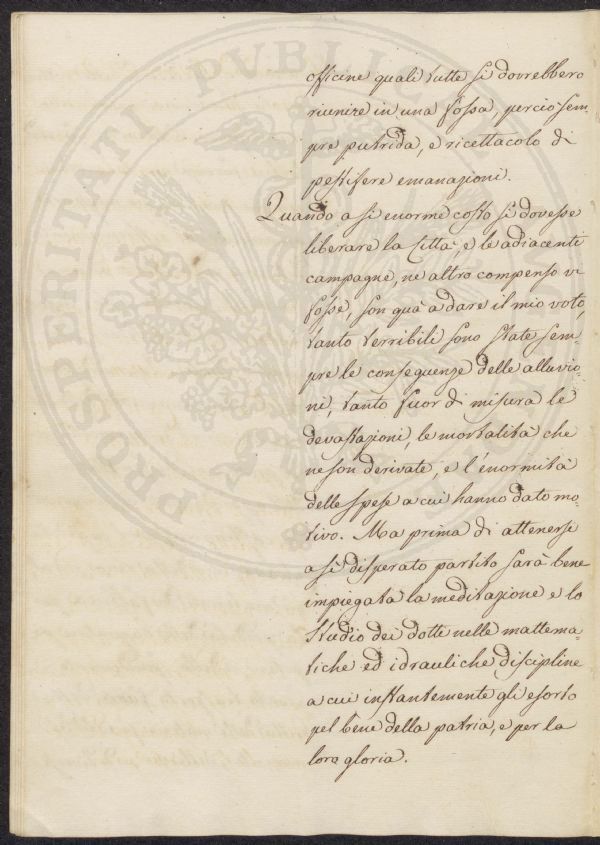 officine quali tutte si dovrebbero
riunire in una fossa, perciò sem-
pre putrida, e ricettacolo di
pestifere emanazioni.
Quando a sì enorme costo si dovesse
liberare la Città, e le adiacenti
campagne, ne altro compenso vi
fosse, son quà a dare il mio voto,
tanto terribili sono state sem-
pre le conseguenze delle alluvio-
ni, tanto fuor di misura le
devastazioni, le mortalità che
ne son derivate, e l'enormità
delle spese a cui hanno dato mo-
tivo. Ma prima di attenersi
a sì disperato partito sarà bene
impiegata la meditazione e lo
studio dei dotti nelle mattema-
tiche ed idrauliche discipline
a cui instantemente gli esorto
pel bene della patria, e per la
loro gloria.
PROSPERITATI PUBLICAE